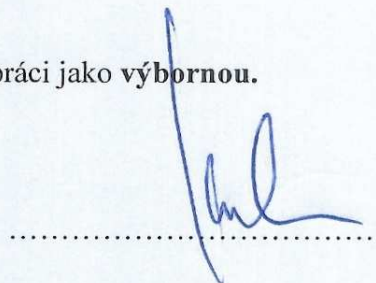 práci jako výbornou.